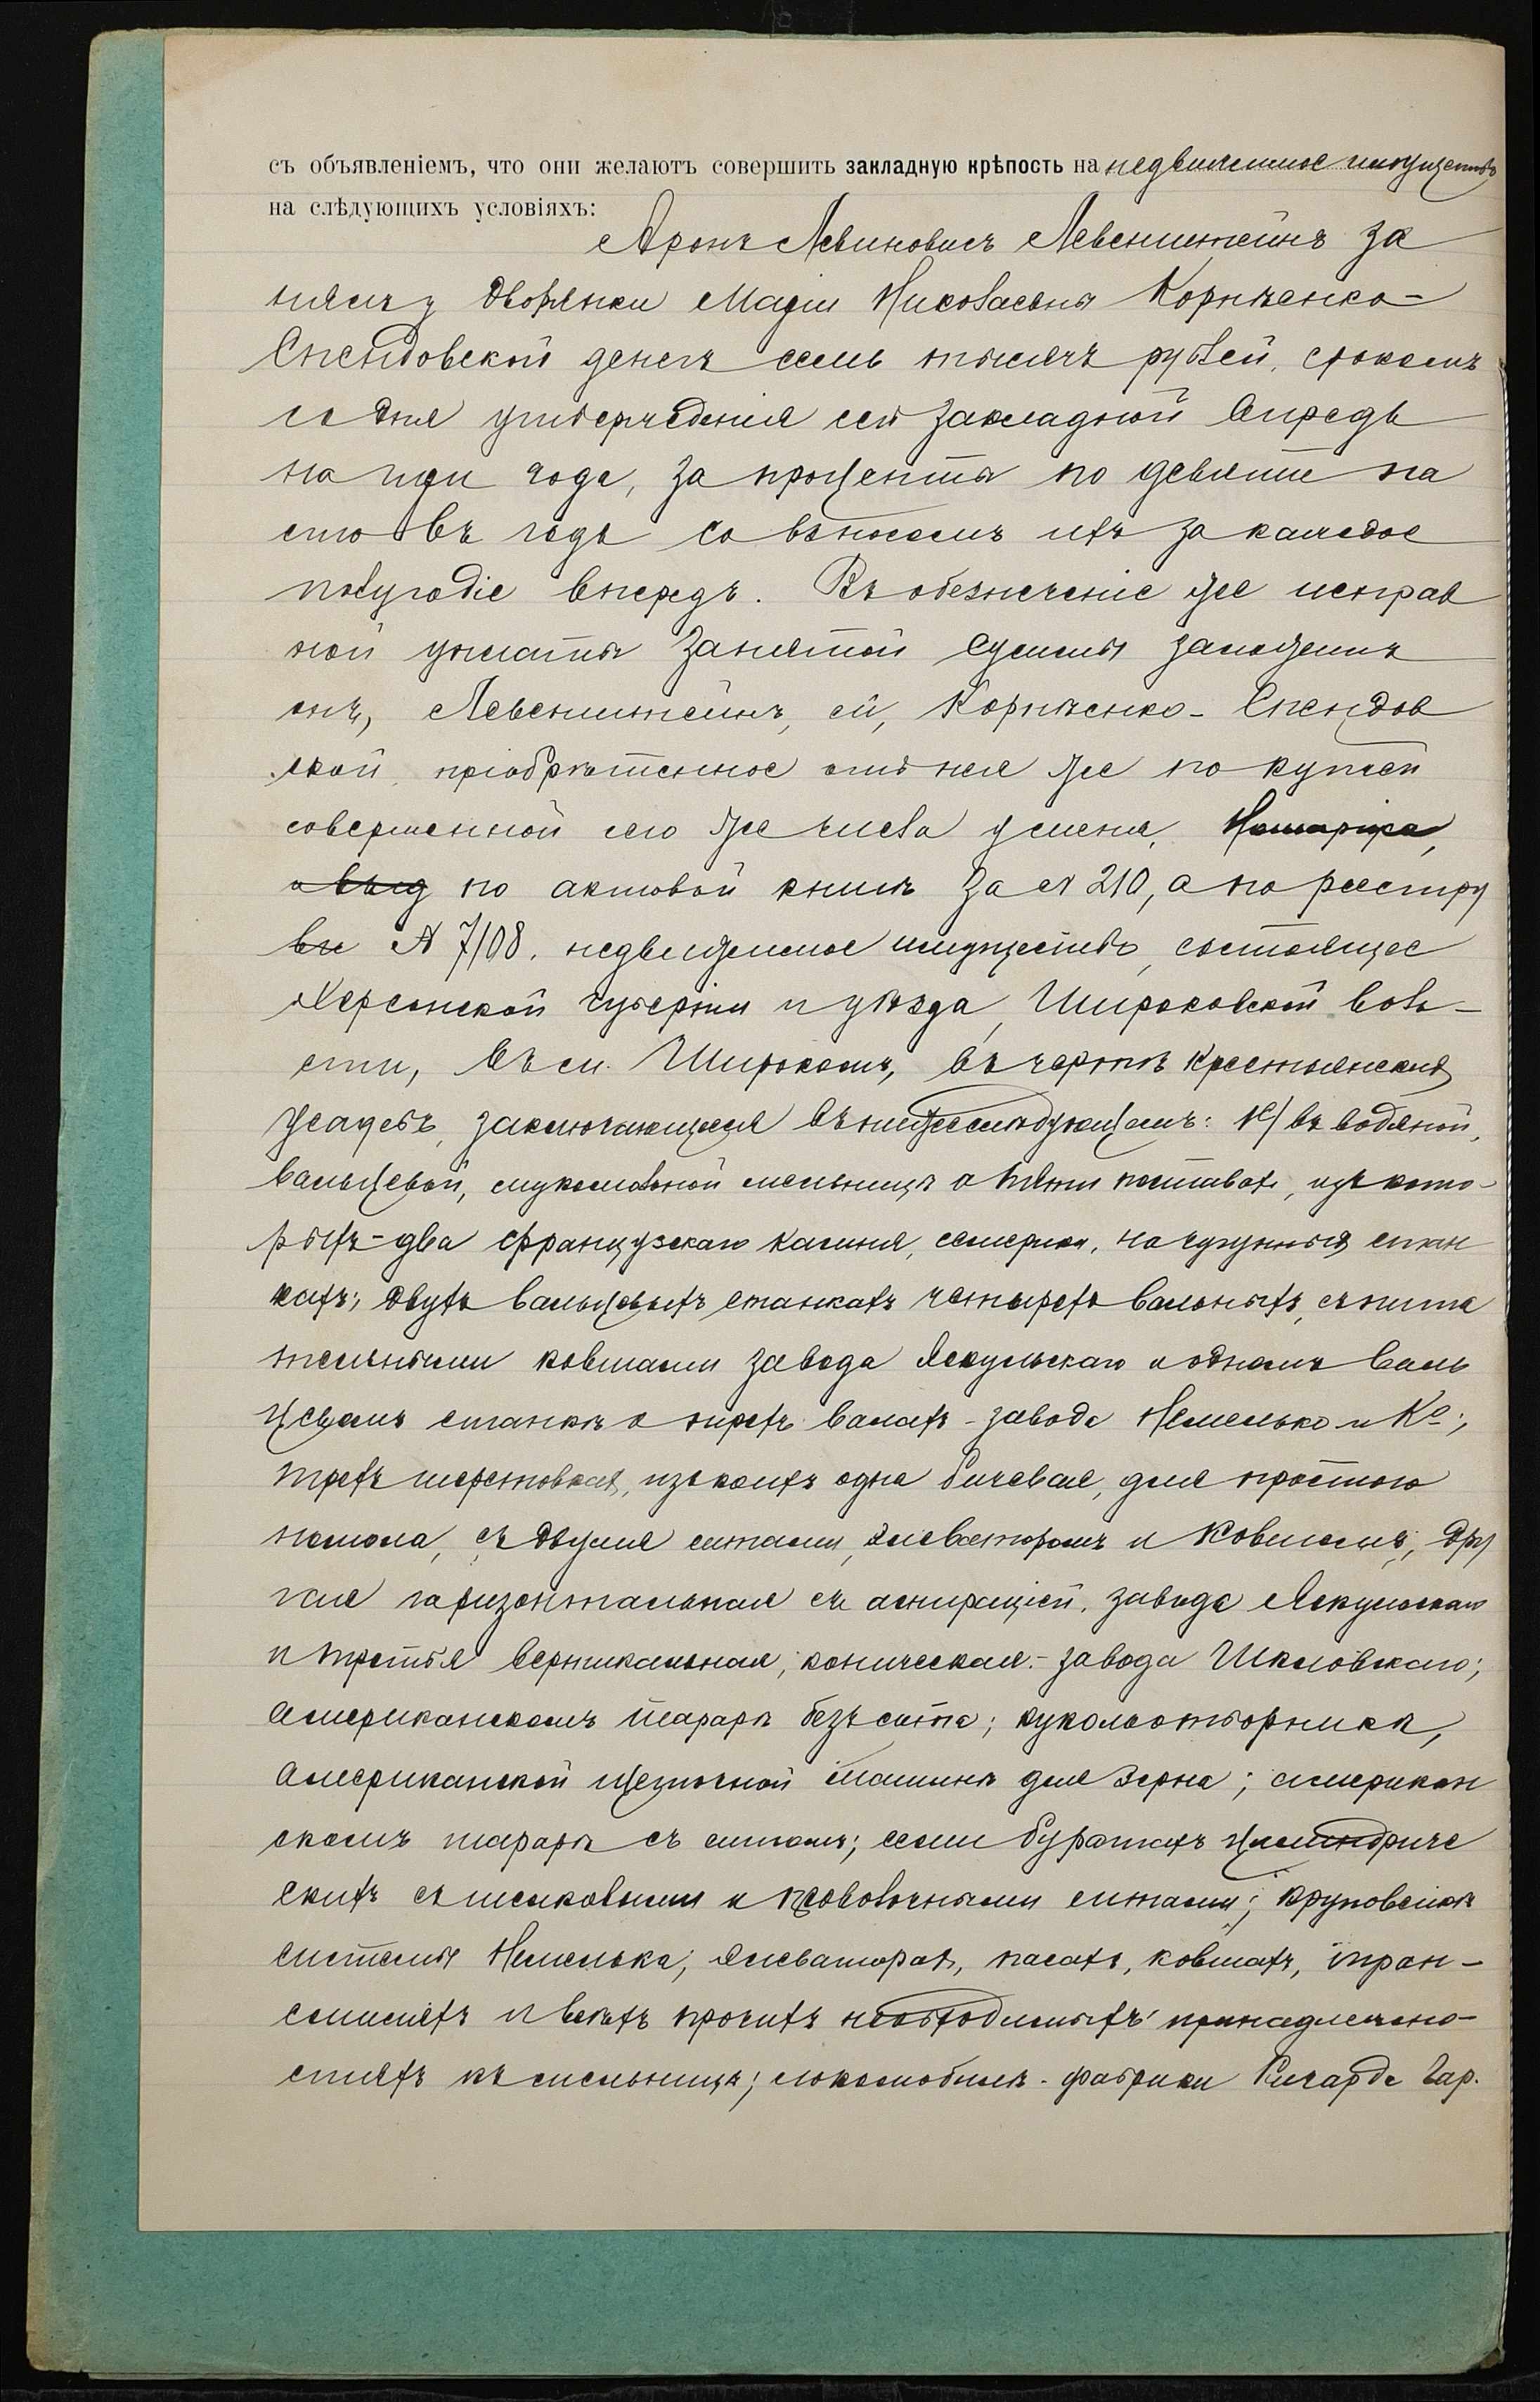 съ объявленіемъ, что они желаютъ совершить закладную крѣпость на недвижимое имущество
на слѣдующихъ условіяхъ:
Аронъ Левиновичъ Левенштейнъ за
нялъ у дворянки Маріи Николаевны Корниченко-
Спендовской денегъ семь тысячъ рублей, срокомъ
со дня утвержденія сей закладной впредь
на три года, за проценты по девяти на
сто въ годъ со взносомъ ихъ за каждое
полугодіе впередъ. Въ обезпеченіе же исправ
ной уплаты занятой суммы заложилъ
онъ, Левенштейнъ, ей, Корниченко-Спендов
ской, пріобрѣтенное отъ нея же по купчей
совершенной сего же числа у меня, Нотаріуса,
по актовой книгѣ за № 210, а по реестру
№ 7108, недвижимое имущество, состоящее
Херсонской губерніи и уѣзда, Широковской воло-
сти, въ м. Широкомъ, въ чертѣ крестьянскихъ
усадебъ, заключающееся въ нижеслѣдующемъ: 1/ въ водяной,
вальцевой, мукомольной мельницѣ о пяти поставахъ, изъ кото-
рыхъ-два французскаго камня, семерика, на чугунныхъ стан
кахъ; двухъ вальцевыхъ станкахъ четырехъ вальныхъ, съ пита
тельными ковшами завода Яскульскаго и одномъ валь
цевомъ станкѣ о трехъ валахъ - завода Немелька и Кº;
трехъ шеретовкахъ, изъ коихъ одна бичевая, для простого
помола, съ двумя ситами, элеваторомъ и ковшомъ; дру
гая горизонтальная съ аспираціей, завода Яскульскаго
и третья вертикальная, коническая - завода Шкловскаго;
американскомъ тарарѣ безъ сита; кукольотборникѣ,
американской щеточной машинѣ для зерна; американ
скомъ тарарѣ съ ситомъ; семи буратахъ цилиндриче
скихъ съ шелковыми и проволочными ситами; круповейкѣ
системы Немелька; элеваторахъ, пасахъ, ковшахъ, тран-
смисіяхъ и всѣхъ прочихъ необходимыхъ принадлежно-
стяхъ къ мельницѣ; локомобилѣ - фабрики Ричарда Гар.